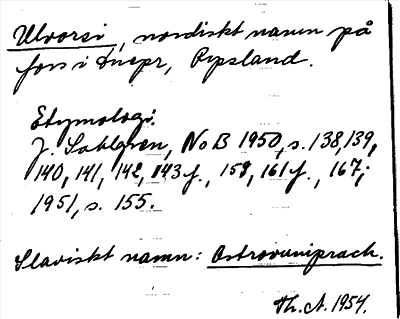 Ulvorsi, nordiskt namn på
fors i Dnepr, Ryssland.
Etymologi:
J. Sahlgren, NoB 1950, s. 138, 139,
140, 141, 142, 143 f., 159, 161 f., 167;
1951, s. 155.
Slaviskt namn: Ostrovuniprach.
Th. A. 1954.